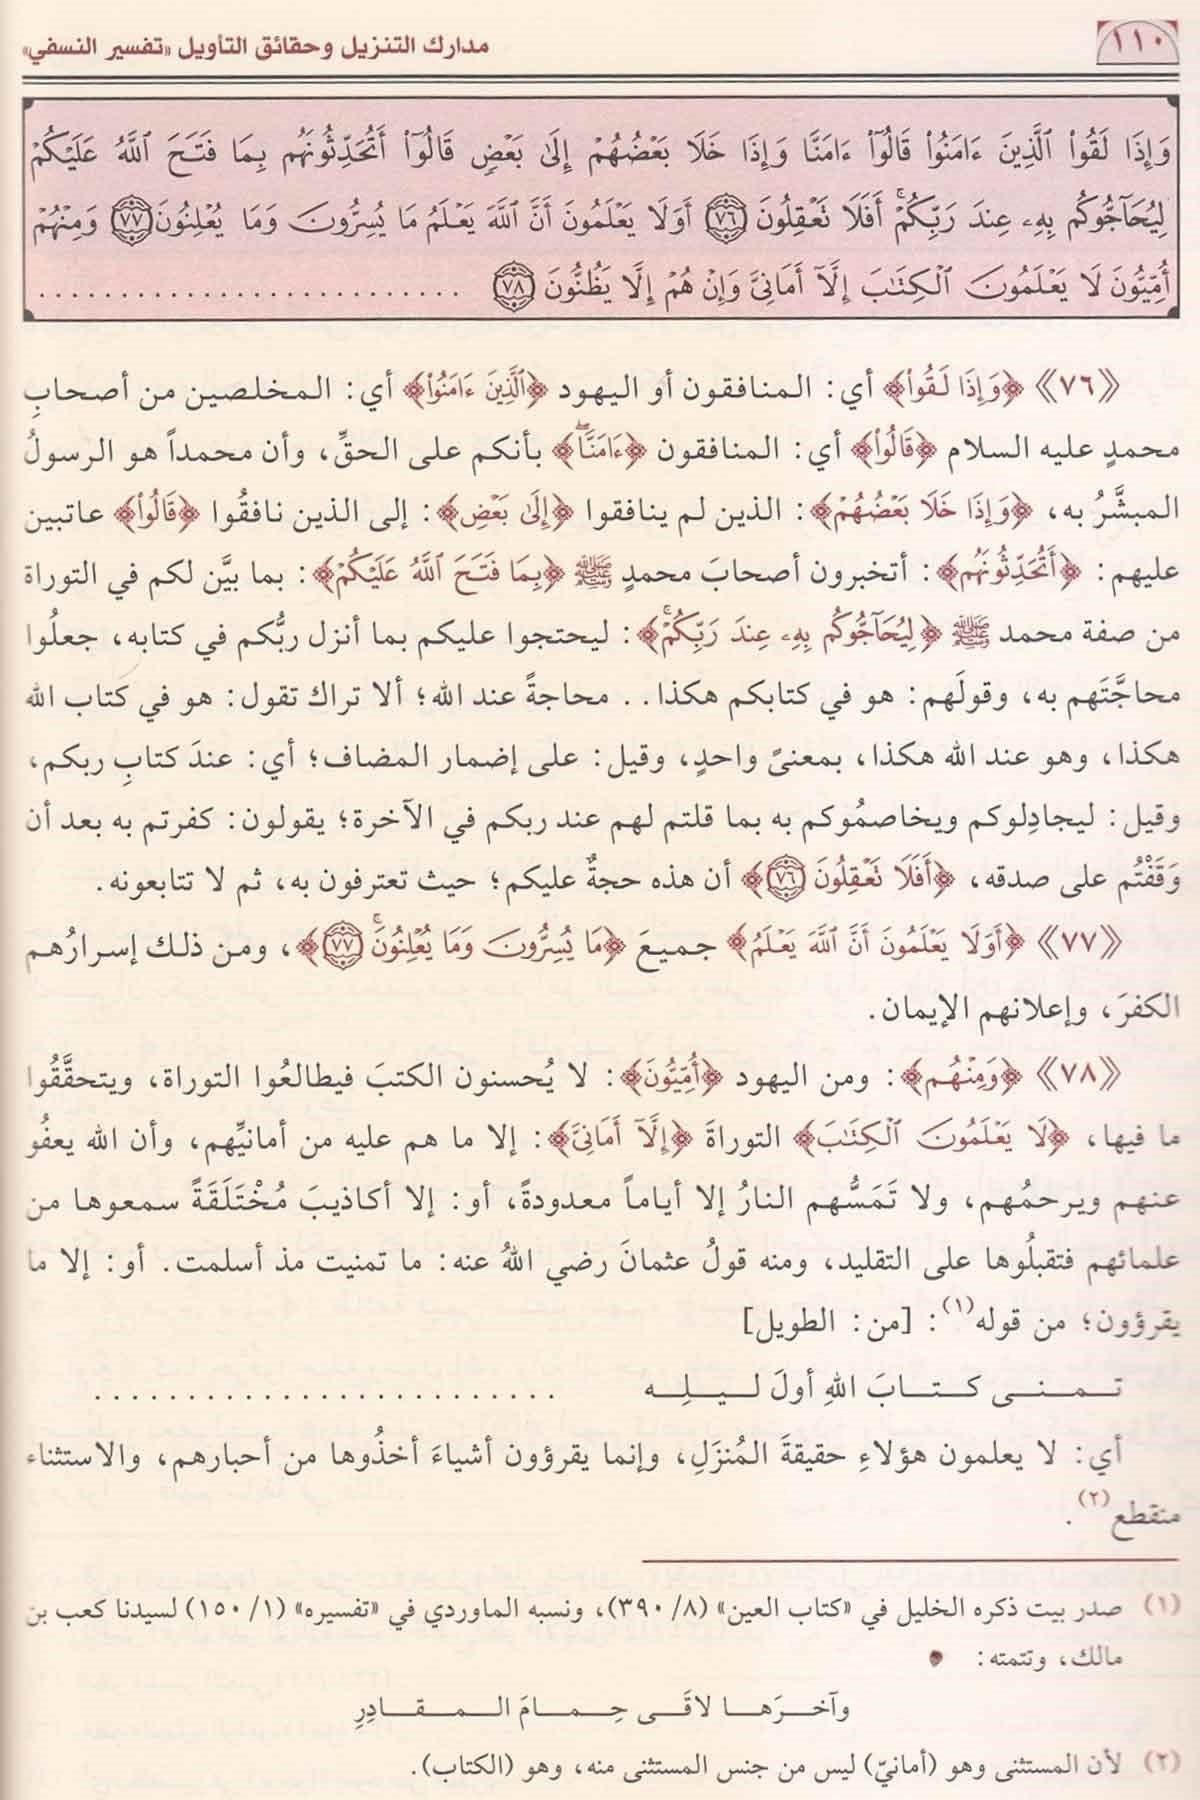 ١١٠
مدارك التنزيل وحقائق التأويل «تفسير النسفي»
وَإِذَا لَقُواْ ٱلَّذِينَ ءَامَنُواْ قَالُوٓاْ ءَامَنَّا وَإِذَا خَلَا بَعۡضُهُمۡ إِلَىٰ بَعۡضٖ قَالُوٓاْ أَتُحَدِّثُونَهُم بِمَا فَتَحَ ٱللَّهُ عَلَيۡكُمۡ
لِيُحَآجُّوكُم بِهِۦ عِندَ رَبِّكُمۡۚ أَفَلَا تَعۡقِلُونَ ٧٦ أَوَلَا يَعۡلَمُونَ أَنَّ ٱللَّهَ يَعۡلَمُ مَا يُسِرُّونَ وَمَا يُعۡلِنُونَ ٧٧ وَمِنۡهُمۡ
أُمِّيُّونَ لَا يَعۡلَمُونَ ٱلۡكِتَٰبَ إِلَّآ أَمَانِيَّ وَإِنۡ هُمۡ إِلَّا يَظُنُّونَ ٧٨ ..........................
《٧٦》 ﴿وَإِذَا لَقُواْ﴾ أي: المنافقون أو اليهود ﴿ٱلَّذِينَ ءَامَنُواْ﴾ أي: المخلصين من أصحابِ
محمدٍ عليه السلام ﴿قَالُوٓاْ﴾ أي: المنافقون ﴿ءَامَنَّا﴾ بأنكم على الحقِّ، وأن محمداً هو الرسولُ
المبشَّرُ به، ﴿وَإِذَا خَلَا بَعۡضُهُمۡ﴾: الذين لم ينافقوا ﴿إِلَىٰ بَعۡضٖ﴾: إلى الذين نافقُوا ﴿قَالُوٓاْ﴾ عاتبين
عليهم: ﴿أَتُحَدِّثُونَهُم﴾: أتخبرون أصحابَ محمدٍ ﷺ ﴿بِمَا فَتَحَ ٱللَّهُ عَلَيۡكُمۡ﴾: بما بيَّن لكم في التوراة
من صفة محمد ﷺ ﴿لِيُحَآجُّوكُم بِهِۦ عِندَ رَبِّكُمۡۚ﴾: ليحتجوا عليكم بما أنزل ربُّكم في كتابه، جعلُوا
محاجَّتَهم به، وقولَهم: هو في كتابكم هكذا.. محاجةً عند الله؛ ألا تراك تقول: هو في كتاب الله
هكذا، وهو عند الله هكذا، بمعنىً واحدٍ، وقيل: على إضمار المضاف؛ أي: عندَ كتابِ ربكم،
وقيل: ليجادِلوكم ويخاصمُوكم به بما قلتم لهم عند ربكم في الآخرة؛ يقولون: كفرتم به بعد أن
وَقَفْتُم على صدقه، ﴿أَفَلَا تَعۡقِلُونَ ٧٦﴾ أن هذه حجةٌ عليكم؛ حيث تعترفون به، ثم لا تتابعونه.
《٧٧》 ﴿أَوَلَا يَعۡلَمُونَ أَنَّ ٱللَّهَ يَعۡلَمُ﴾ جميعَ ﴿مَا يُسِرُّونَ وَمَا يُعۡلِنُونَ ٧٧﴾، ومن ذلك إسرارُهم
الكفرَ، وإعلانهم الإيمان.
《٧٨》 ﴿وَمِنۡهُمۡ﴾: ومن اليهود ﴿أُمِّيُّونَ﴾: لا يُحسنون الكتبَ فيطالعُوا التوراة، ويتحقَّقُوا
ما فيها، ﴿لَا يَعۡلَمُونَ ٱلۡكِتَٰبَ﴾ التوراةَ ﴿إِلَّآ أَمَانِيَّ﴾: إلا ما هم عليه من أمانيِّهم، وأن الله يعفُو
عنهم ويرحمُهم، ولا تَمَسُّهم النارُ إلا أياماً معدودةً، أو: إلا أكاذيبَ مُخْتَلَقَةً سمعوها من
علمائهم فتقبلُوها على التقليد، ومنه قولُ عثمانَ رضي اللهُ عنه: ما تمنيت مذ أسلمت. أو: إلا ما
يقرؤون؛ من قوله(١): [من: الطويل]
تمنى كتابَ اللهِ أولَ ليلِه ..........................
أي: لا يعلمون هؤلاءِ حقيقةَ المُنزَلِ، وإنما يقرؤون أشياءَ أخذُوها من أحبارهم، والاستثناء
منقطع(٢).
(١) صدر بيت ذكره الخليل في «كتاب العين» (٨/ ٣٩٠)، ونسبه الماوردي في «تفسيره» (١/ ١٥٠) لسيدنا كعب بن
مالك، وتتمته:
وآخرَها لاقَى حِمامَ المقادِرِ
(٢) لأن المستثنى وهو (أمانيّ) ليس من جنس المستثنى منه، وهو (الكتاب).